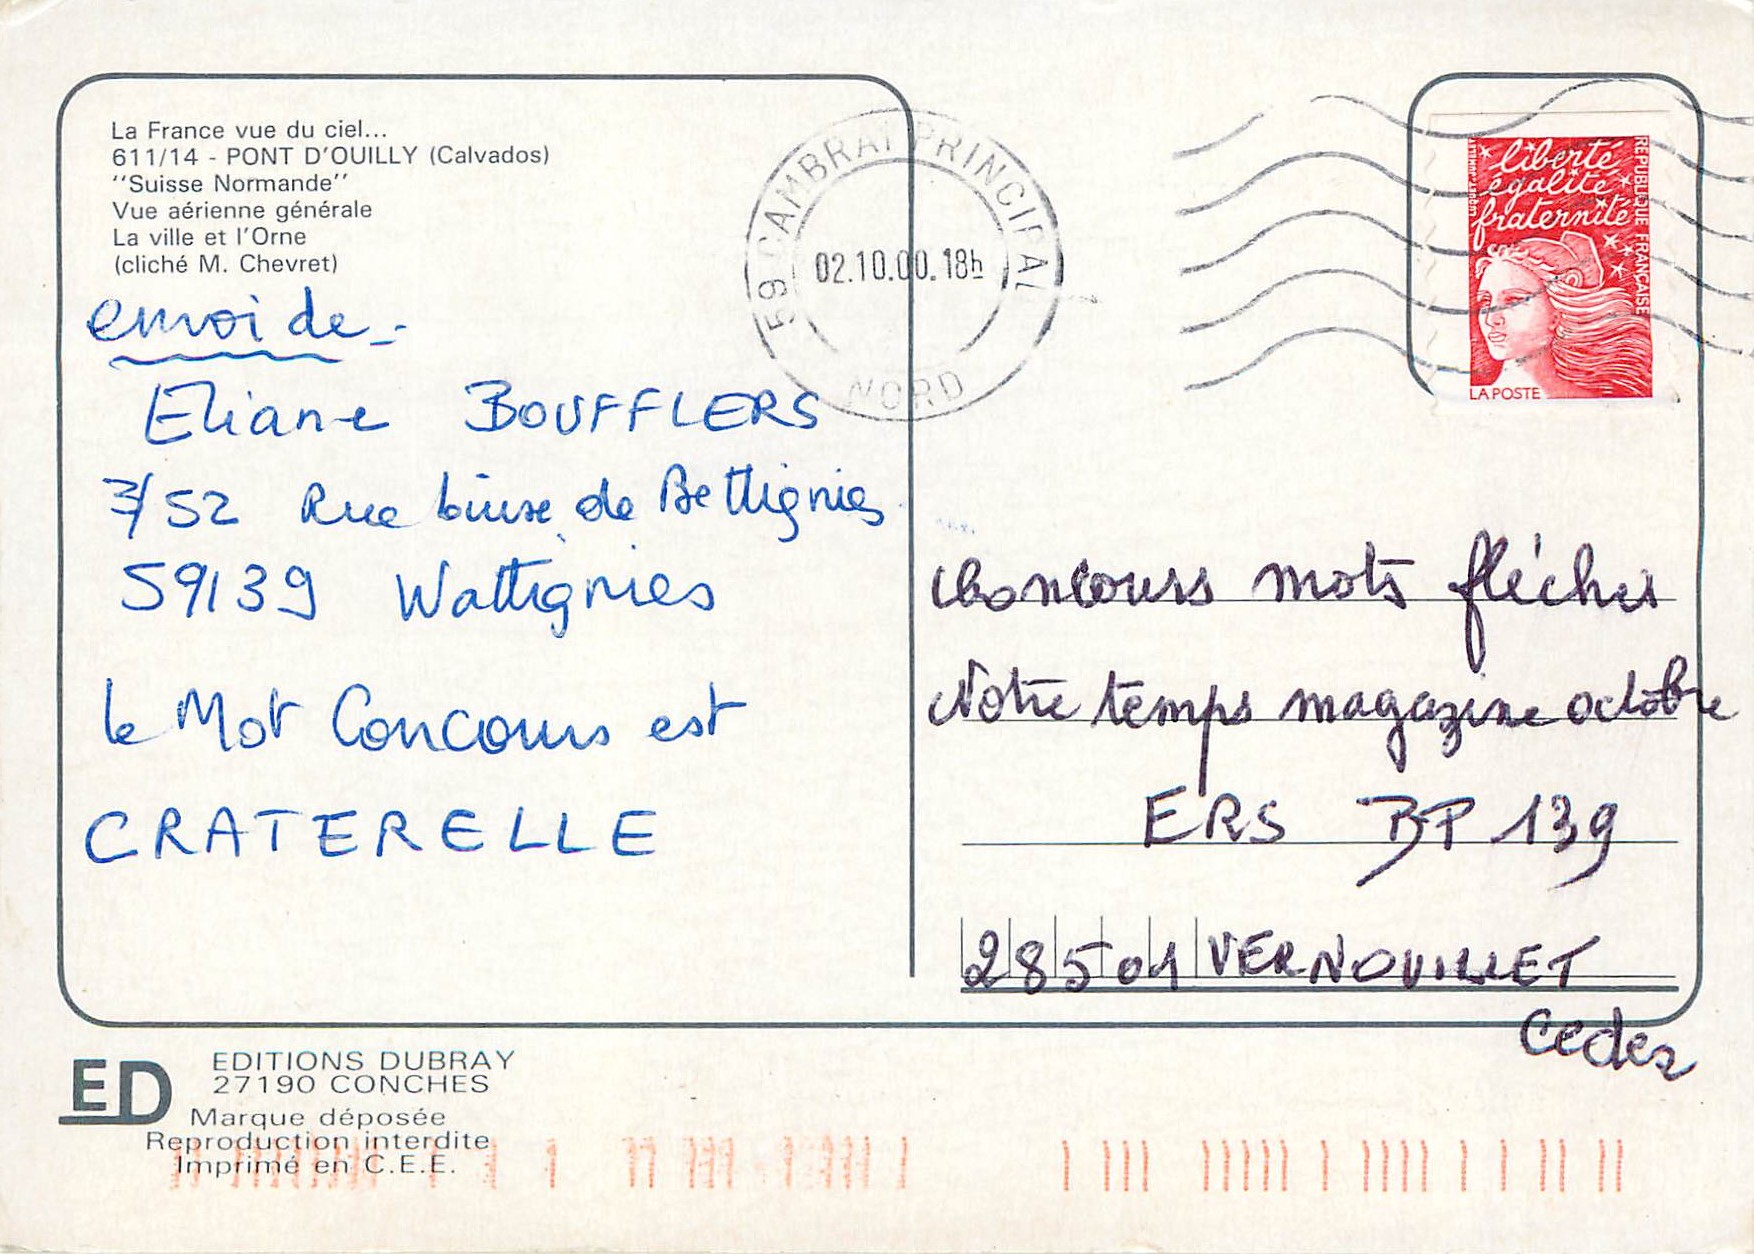 La France vue du ciel...
611/14 - PONT D'OUILLY (Calvados)
''Suisse Normande''
Vue aérienne générale
La ville et l'Orne
(cliché M. Chevret)
envoi de -
Eliane BOUFFLERS
3/52 Rue de Bettignies
59139 Wattignies
le Mot Concours est
CRATERELLE
59 CAMBRAI PRINCIPAL
02.10.00.18h
NORD
liberté
égalité
fraternité
RÉPUBLIQUE FRANÇAISE
LA POSTE
Choncours mots fléchés
Notre temps magazine octobre
ERS BP 139
28501 VERNOUILLET
Cedex
ED
EDITIONS DUBRAY
27190 CONCHES
Marque déposée
Reproduction interdite
Imprimé en C.E.E.